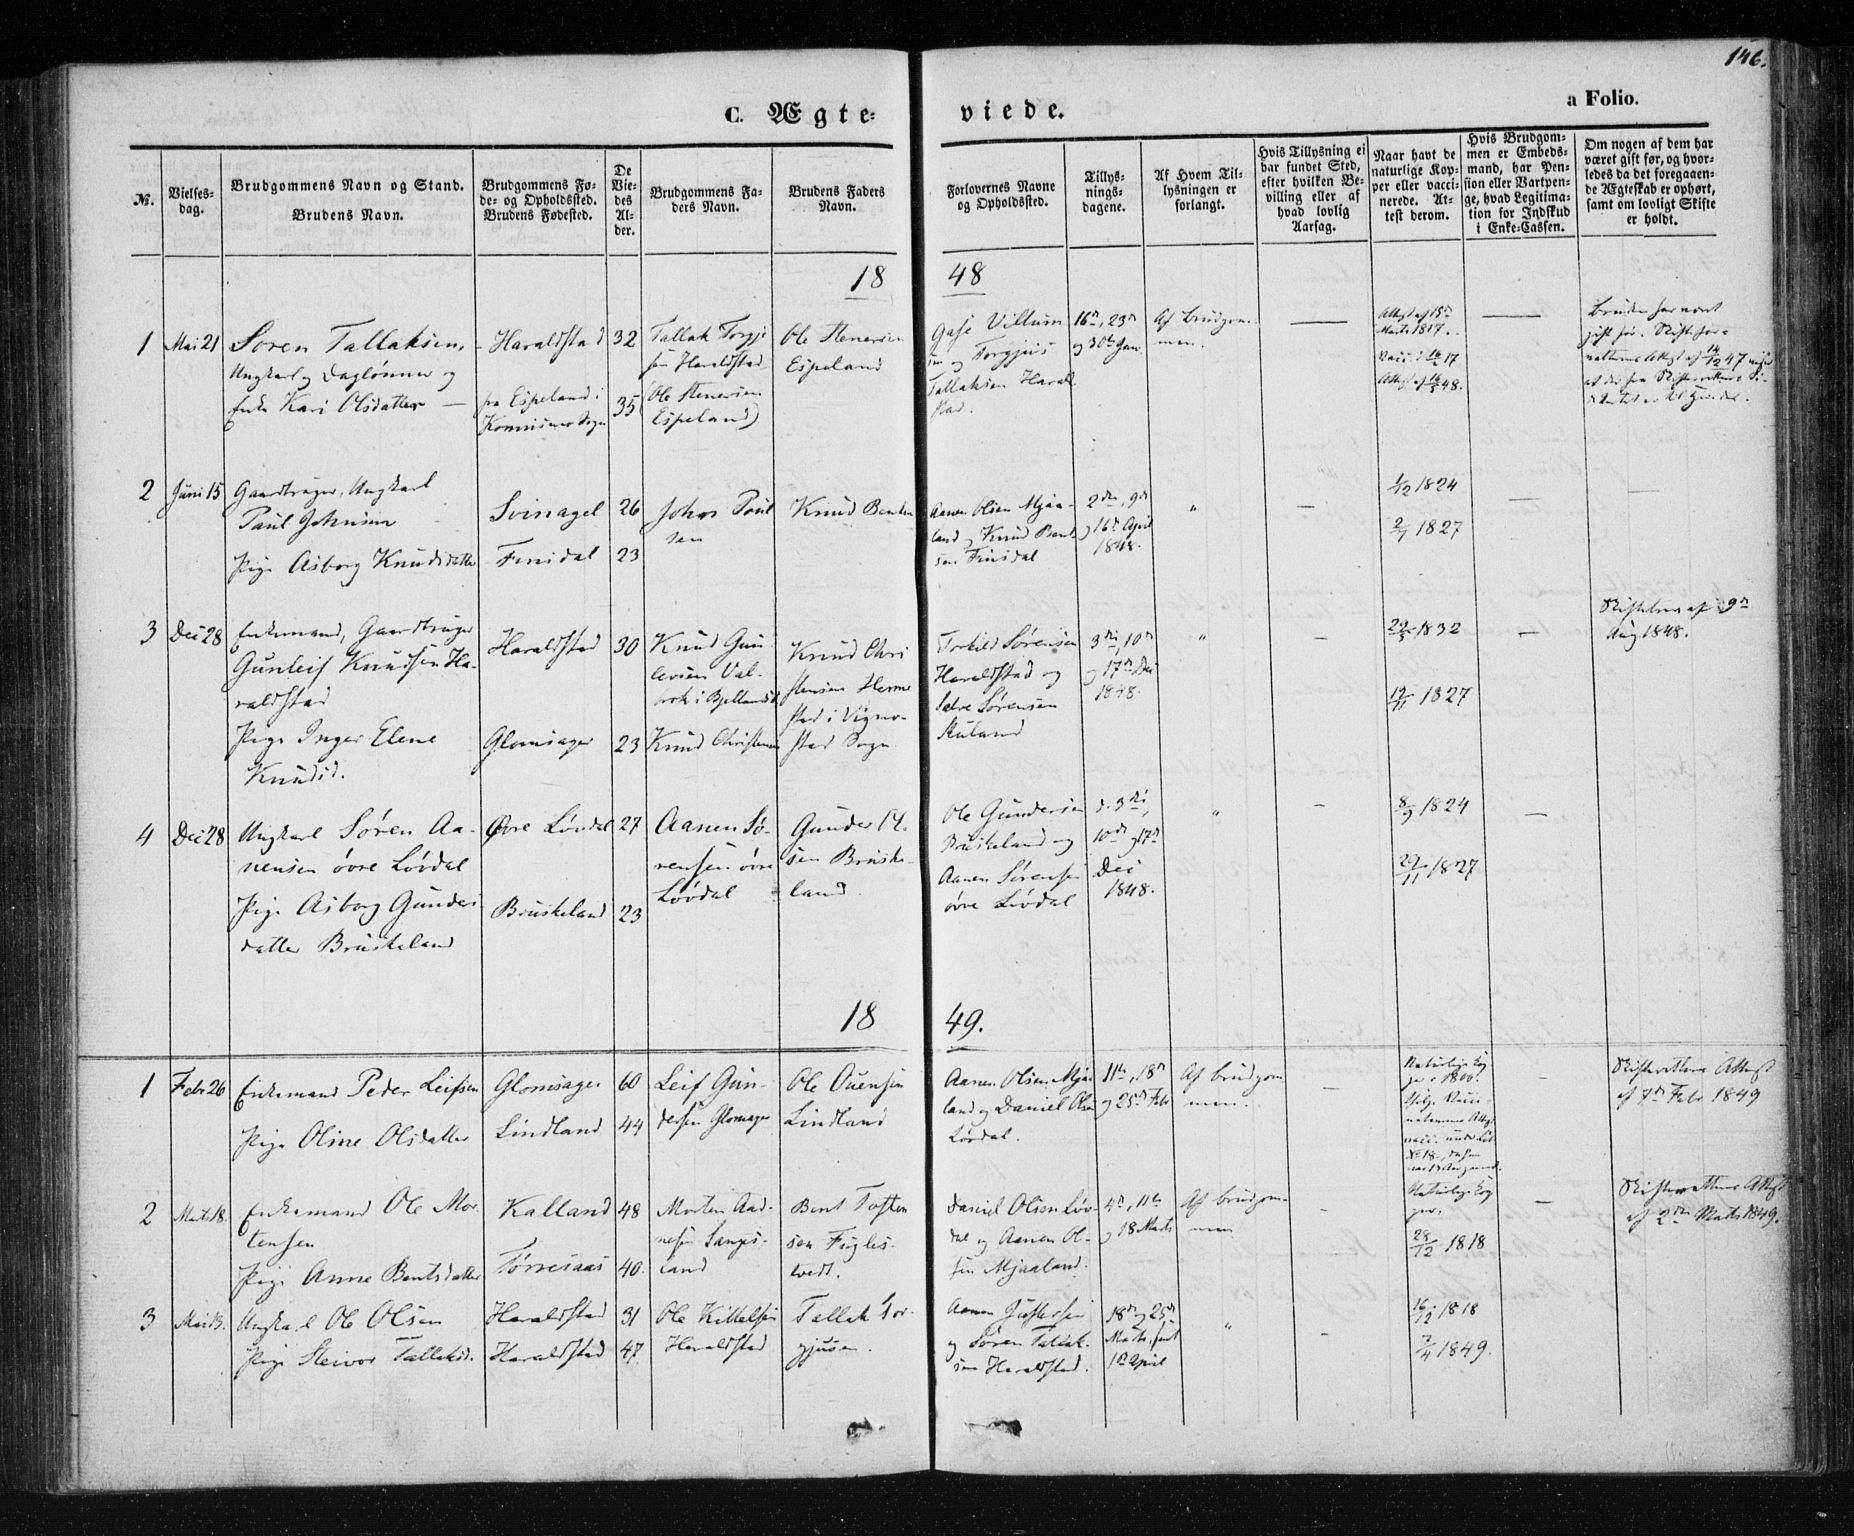 146.
C. Ægte-
viede.
a Folio.
№.
Vielses-
dag.
Brudgommens Navn og Stand.
Brudens Navn.
Brudgommens Fø-
de- og Opholdssted.
Brudens Fødested.
De
Vie-
des
Al-
der.
Brudgommens Fa-
ders Navn.
Brudens Faders
Navn.
Forlovernes Navne
og Opholdssted.
Tillys-
nings-
dagene.
Af Hvem Til-
lysningen er
forlangt.
Hvis Tillysning ei
har fundet Sted,
efter hvilken Be-
villing eller af
hvad lovlig
Aarsag.
Naar havt de
naturlige Kop-
per eller vacci-
nerede. At-
test derom.
Hvis Brudgom-
men er Embeds-
mand, har Pen-
sion eller Vartpen-
ge, hvad Legitima-
tion for Indskud
i Enke-Cassen.
Om nogen af dem har
været gift før, og hvor-
ledes da det foregaaen-
de Ægteskab er ophørt,
samt om lovligt Skifte
er holdt.
18 48
1
Mai 21
Søren Tallaksen,
Ungkarl og Daglønner og
Enke Kari Olsdatter
Haraldstad
fra Espeland i
Sogn
32
35
Tallak Torgju
sen Haraldstad
(Ole Stenersen
Espeland)
Ole Stenersen
Espeland
Villum
sen og Torgjuus
Tallaksen Harald
stad.
16de, 23de
og 30te Jan
Af brudgom-
men.
Attest af 15de
Marts 1817.
Vacc. d. 16/12 17
Attest af 16/5 48.
Bruden har været
gift før. Skiftefor-
valterens Attest af 14/12 47
2
Juni 15
Gaardbruger, Ungkarl
Paul Johnsen
Pige Asborg Knudsdatter
Svinagel
Finsdal
26
23
John Paul
sen
Knud Bentsen
Aanen Olsen Mjaa-
land og Knud Bent
sen Finsdal
2den, 9de
og 16de April
1848.
"
1/12 1824
2/7 1827
3
Dec 28
Enkemand, Gaardbruger
Gunleif Knudsen Ha-
raldstad
Pige Inger Elene
Knudsd.
Haraldstad
Glomsager
30
23
Knud Gun
levsen Val-
brok i Bjelland
Knud Christensen
Knud Chri
stensen Homme
stad i Vigmo-
stad Sogn
Torkild Sørensen
Haraldstad og
Salve Sørensen
Stuland
3die, 10de
og 17de Dec
1848.
"
29/5 1832
19/11 1827
Skiftebrev af 9de
Aug 1848.
4
Dec 28
Ungkarl Søren Aa-
nensen øvre Løvdal
Pige Asborg Gunders
datter Bruskeland
Øvre Løvdal
Bruskeland
27
23
Aanen Sø-
rensen øvre
Løvdal
Gunder Ol-
sen Bruske-
land.
Ole Gundersen
Bruskeland og
Aanen Sørensen
øvre Løvdal
d. 3die,
10de og 17de
Dec
1848.
"
8/9 1824
29/11 1827
18 49.
1
Febr 26
Enkemand Peder Leifsen
Pige Oline Olsdatter
Glomsager
Lindland
60
44
Leif Gun-
dersen Glomsager
Ole Ouensen
Lindland
Aanen Olsen Mjaa
land og Daniel Olsen
Løvdal.
11te, 18de
og 25de Febr
Af brudgom
men.
Naturlige Kop
per i 1800.
Skifterettens Attest
af 7de Febr 1849
2
Marts 18.
Enkemand Ole Mor-
tensen
Pige Anne Bentsdatter
Kalland
Tørresaas
48
40.
Morten Aad-
nesen Langes-
land
Bent Tosten
sen Fugles-
tvedt.
Daniel Olsen Løv-
dal og Aanen Ol-
sen Mjaaland.
4de, 11te
og 18 Marts
Af brudgom-
men
Naturlige Kop
per,
28/12 1818
Skifterettens Attest
af 2den Marts 1849.
3
Mai 13.
Ungkarl Ole Olsen
Pige Steivor Tallaksd.
Haraldstad
Haraldstad
31
47
Ole Kittelsen
Haraldstad
Tallak Tor-
gjusen.
Aanen Gustersen
og Søren Tallak-
sen Haraldstad.
18de og 25de
Marts, samt
1ste April
"
16/12 1818
7/4 1849.